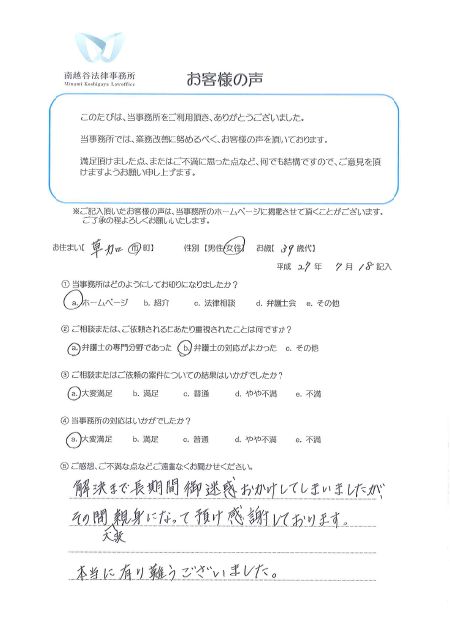 南越谷法律事務所
Minami-Koshigaya Lawoffice
お客様の声
このたびは、当事務所をご利用頂き、ありがとうございました。
当事務所では、業務改善に努めるべく、お客様の声を頂いております。
満足頂けました点、またはご不満に思った点など、何でも結構ですので、ご意見を頂
けますようお願い申し上げます。
※ご記入頂いたお客様の声は、当事務所のホームページに掲載させて頂くことがございます。
ご了承の程よろしくお願いいたします。
お住まい【 草加 市 町】 性別【男性 女性】 お歳【 39 歳代】
平成 27 年 7 月 18 記入
① 当事務所はどのようにしてお知りになりましたか？
a. ホームページ b. 紹介 c. 法律相談 d. 弁護士会 e. その他
② ご相談または、ご依頼されるにあたり重視されたことは何ですか？
a. 弁護士の専門分野であった b. 弁護士の対応がよかった c. その他
③ ご相談またはご依頼の案件についての結果はいかがでしたか？
a. 大変満足 b. 満足 c. 普通 d. やや不満 e. 不満
④ 当事務所の対応はいかがでしたか？
a. 大変満足 b. 満足 c. 普通 d. やや不満 e. 不満
⑤ ご感想、ご不満な点などご遠慮なくお聞かせください。
解決まで長期間御迷惑おかけしてしまいましたが、
その間親身になって頂け感謝しております。
大変
本当に有り難うございました。